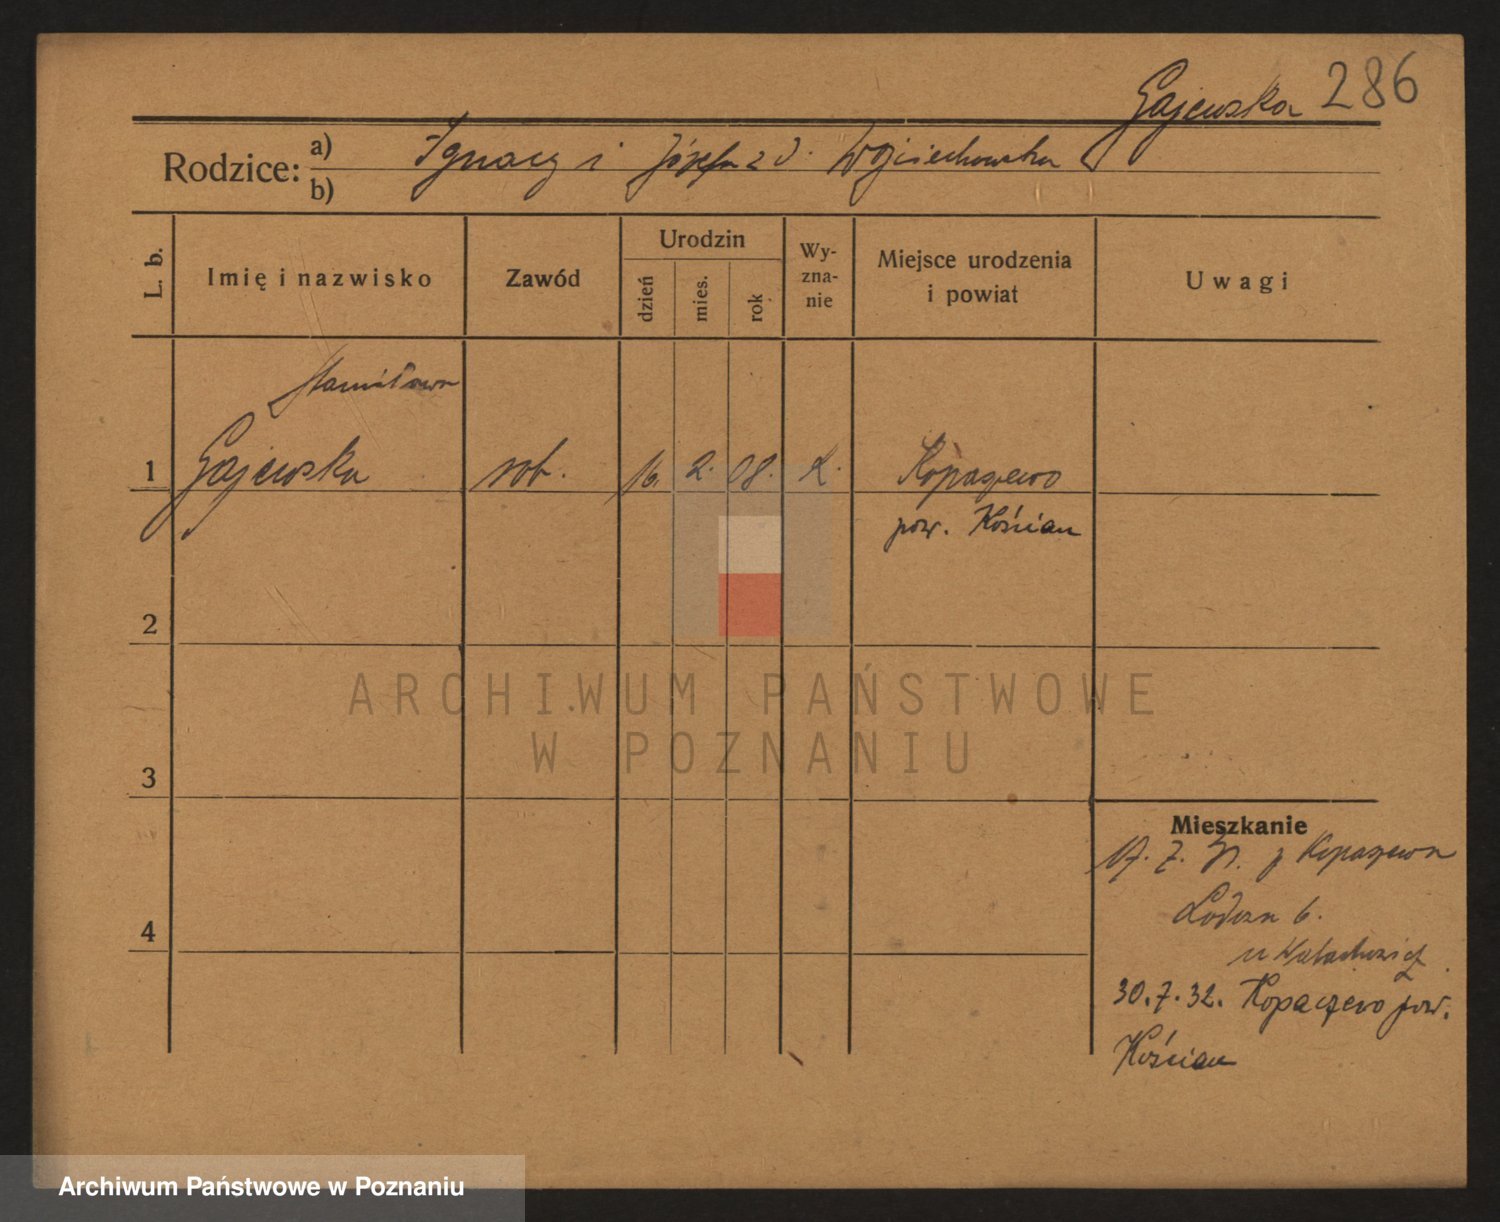 Gajewska 286
Rodzice: a) Ignacy i Józefa z d. Wojciechowska
b)
L. b. Imię i nazwisko Zawód Urodzin dzień mies. rok Wy-zna-nie Miejsce urodzenia i powiat Uwagi
Stanisława
1 Gajewska rob. 16. 2. 08. k. Kopaszewo
pow. Kościan
2
ARCHIWUM PAŃSTWOWE
W POZNANIU
3
Mieszkanie
z Kopaszewa
6.
4
u
30.7.32. Kopaszewo pow.
Kościan
Archiwum Państwowe w Poznaniu